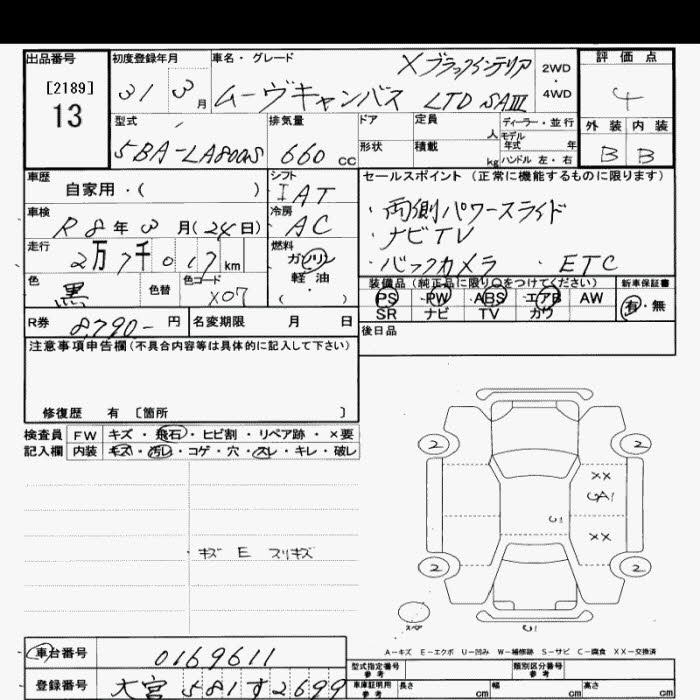 出品番号
[2189]
13
初度登録年月
31 3月
車名・グレード
Xブラックインテリア
ムーヴキャンバス LTD SAIII
2WD
・
4WD
評価点
4
外装 内装
B B
型式
5BA-LA800S
排気量
660 cc
ドア
形状
定員 人
積載 kg
ディーラー・並行
モデル
年式 年
ハンドル 左・右
車歴
自家用・( )
シフト
IAT
車検
R8年3月(24日)
冷房
AC
走行
2万7千017km
燃料
ガソリン
軽油
( )
色
黒
色替
色コード
X07
セールスポイント(正常に機能するものに限ります)
・両側パワースライド
・ナビTV
・バックカメラ ・ETC
装備品(純正品に限り○をつけてください)
PS・PW・ABS・エアB AW
SR ナビ TV カワ
新車保証書
有・無
R券 8790- 円
名変期限 月 日
後日品
注意事項申告欄(不具合内容等は具体的に記入して下さい)
修復歴 有 〔箇所 〕
検査員 FW キズ・飛石・ヒビ割・リペア跡・×要
記入欄 内装 キズ・汚れ・コゲ・穴・スレ・キレ・破レ
キズ E スリキズ
2 2
XX
UA1
U1
XX
2 2
スペア
U1
A-キズ E-エクボ U-凹み W-補修跡 S-サビ C-腐食 XX-交換済
車台番号 0169611
登録番号 大宮 581 す 2699
型式指定番号
参考
類別区分番号
参考
車庫証明用
参考
長さ cm 幅 cm 高さ cm